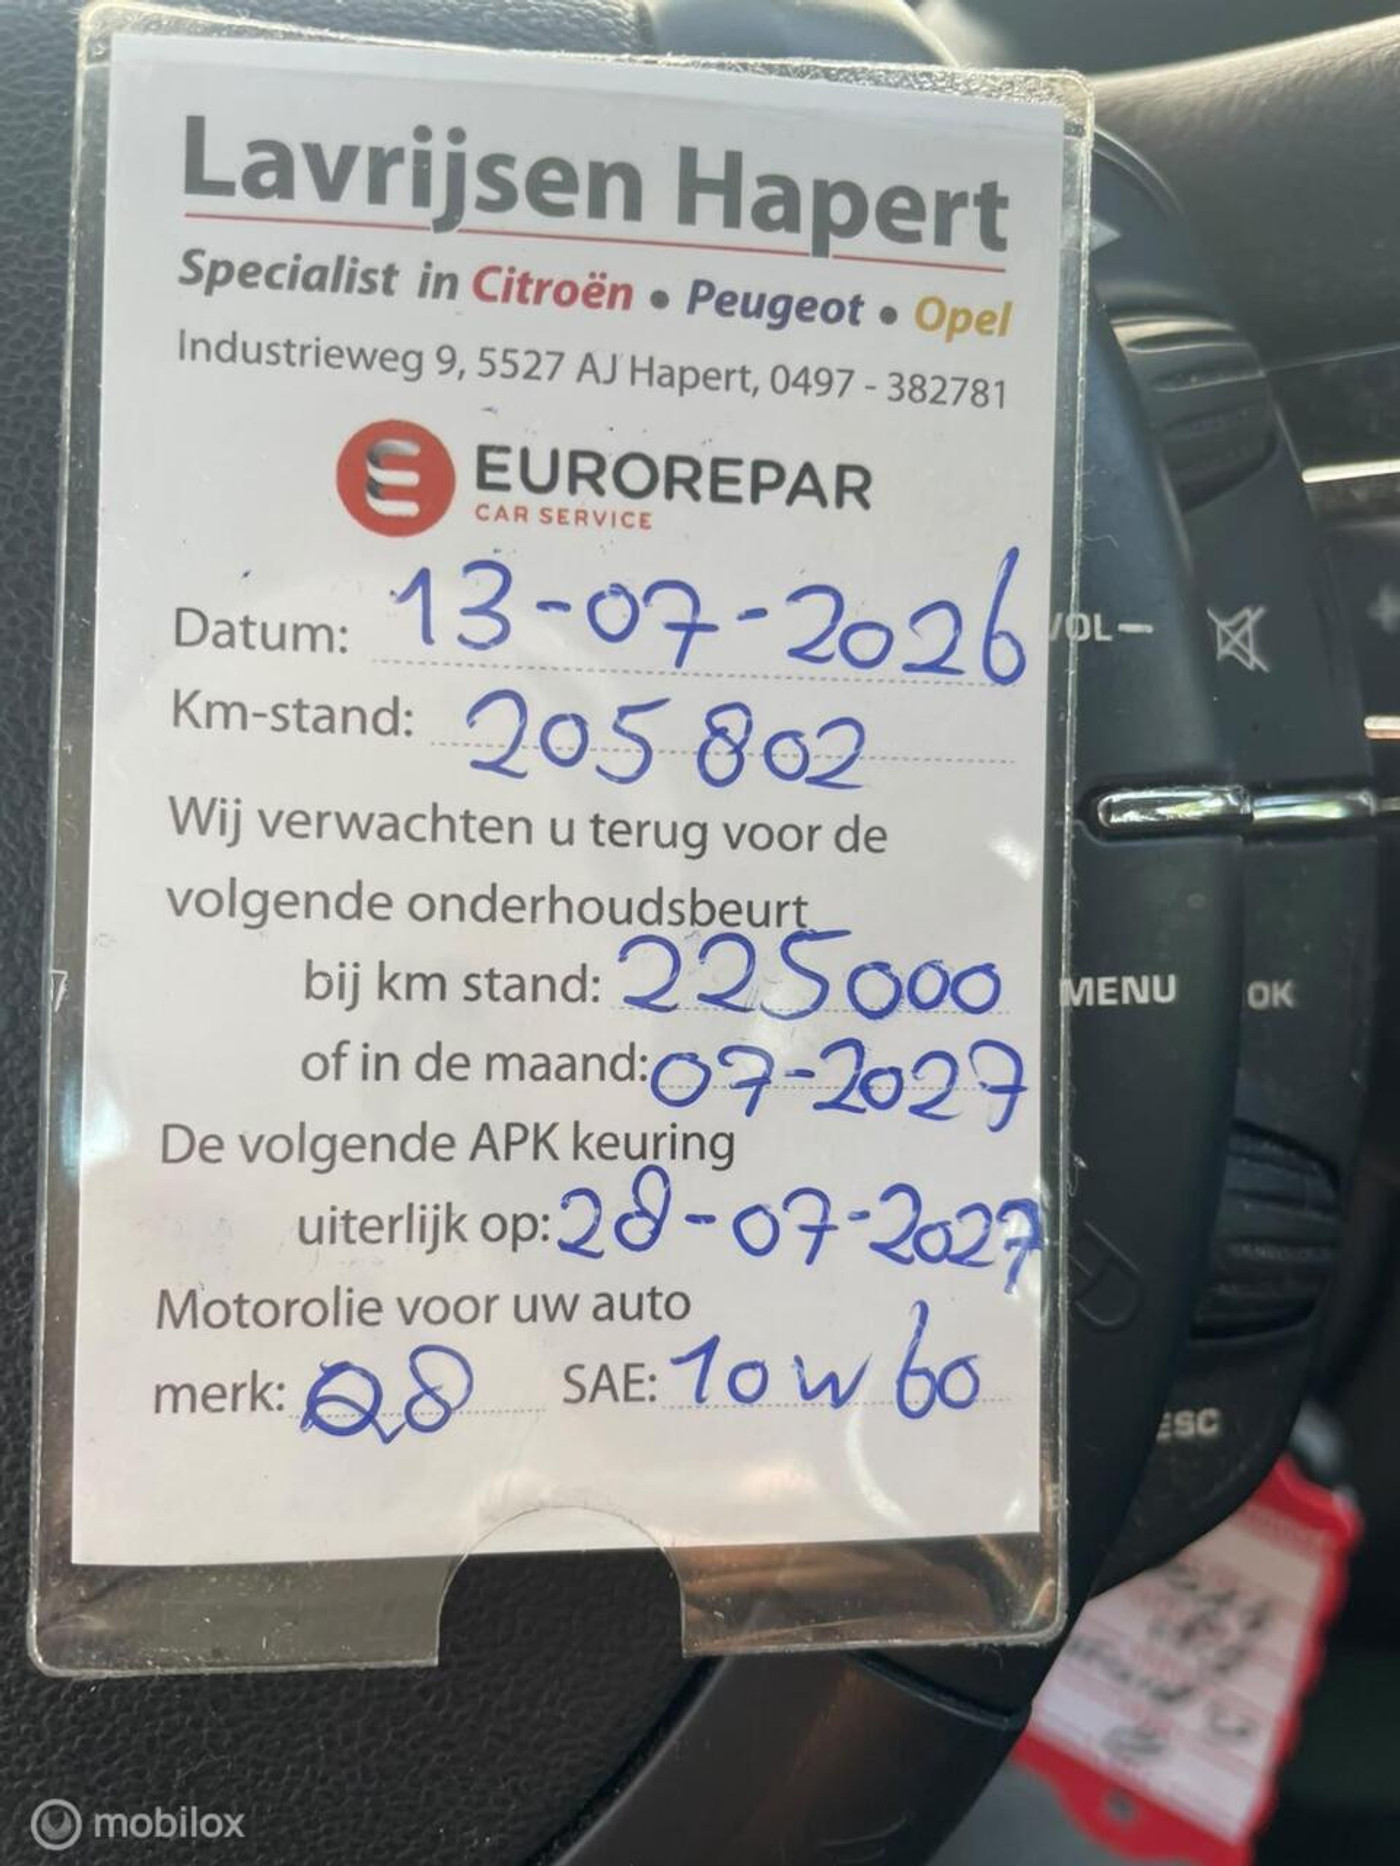 Lavrijsen Hapert
Specialist in Citroën • Peugeot • Opel
Industrieweg 9, 5527 AJ Hapert, 0497 - 382781
EUROREPAR
CAR SERVICE
Datum: 13-07-2026
Km-stand: 205802
Wij verwachten u terug voor de
volgende onderhoudsbeurt
bij km stand: 225000
of in de maand: 07-2027
De volgende APK keuring
uiterlijk op: 28-07-2027
Motorolie voor uw auto
merk: Q8 SAE: 10W60
VOL –
MENU OK
ESC
mobilox